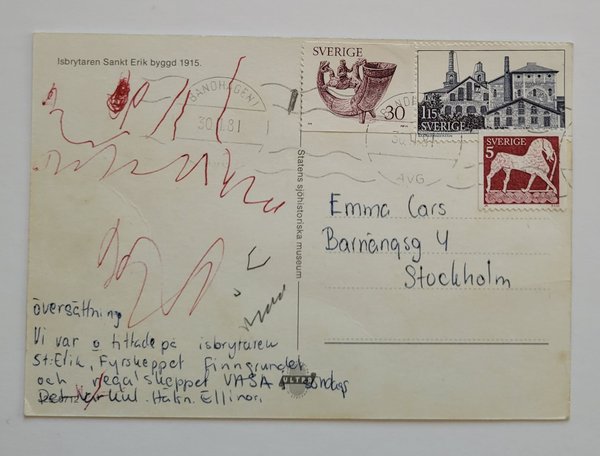 Isbrytaren Sankt Erik byggd 1915.
SANDHAGEN 1
30.1.81
SVERIGE
30
1.15
SVERIGE
SVERIGE
5
AVG
Statens sjöhistoriska museum
Emma Cars
Barnängsg 4
Stockholm
översättning
Vi var o tittade på isbrytaren
St: Erik, Fyrskeppet Finngrundet
och regalskeppet VASA i söndags
Det var kul. Hälsn. Ellinor.
ULTRA